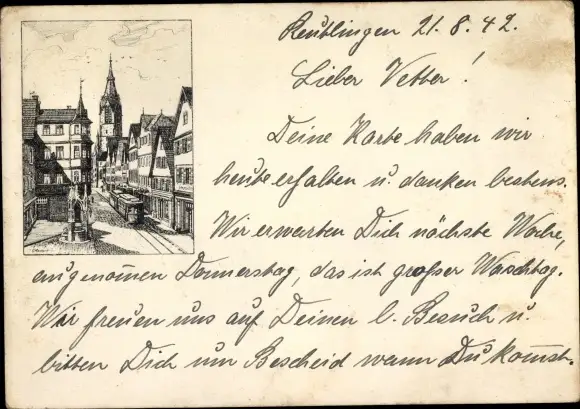 Reutlingen 21. 8. 42.
Lieber Vetter!
Deine Karte haben wir
heute erhalten u. danken bestens.
Wir erwarten Dich nächste Woche,
ausgenomen Donnerstag, das ist großer Waschtag.
Wir freuen uns auf Deinen l. Besuch u.
bitten Dich um Bescheid wann Du kom̅st.